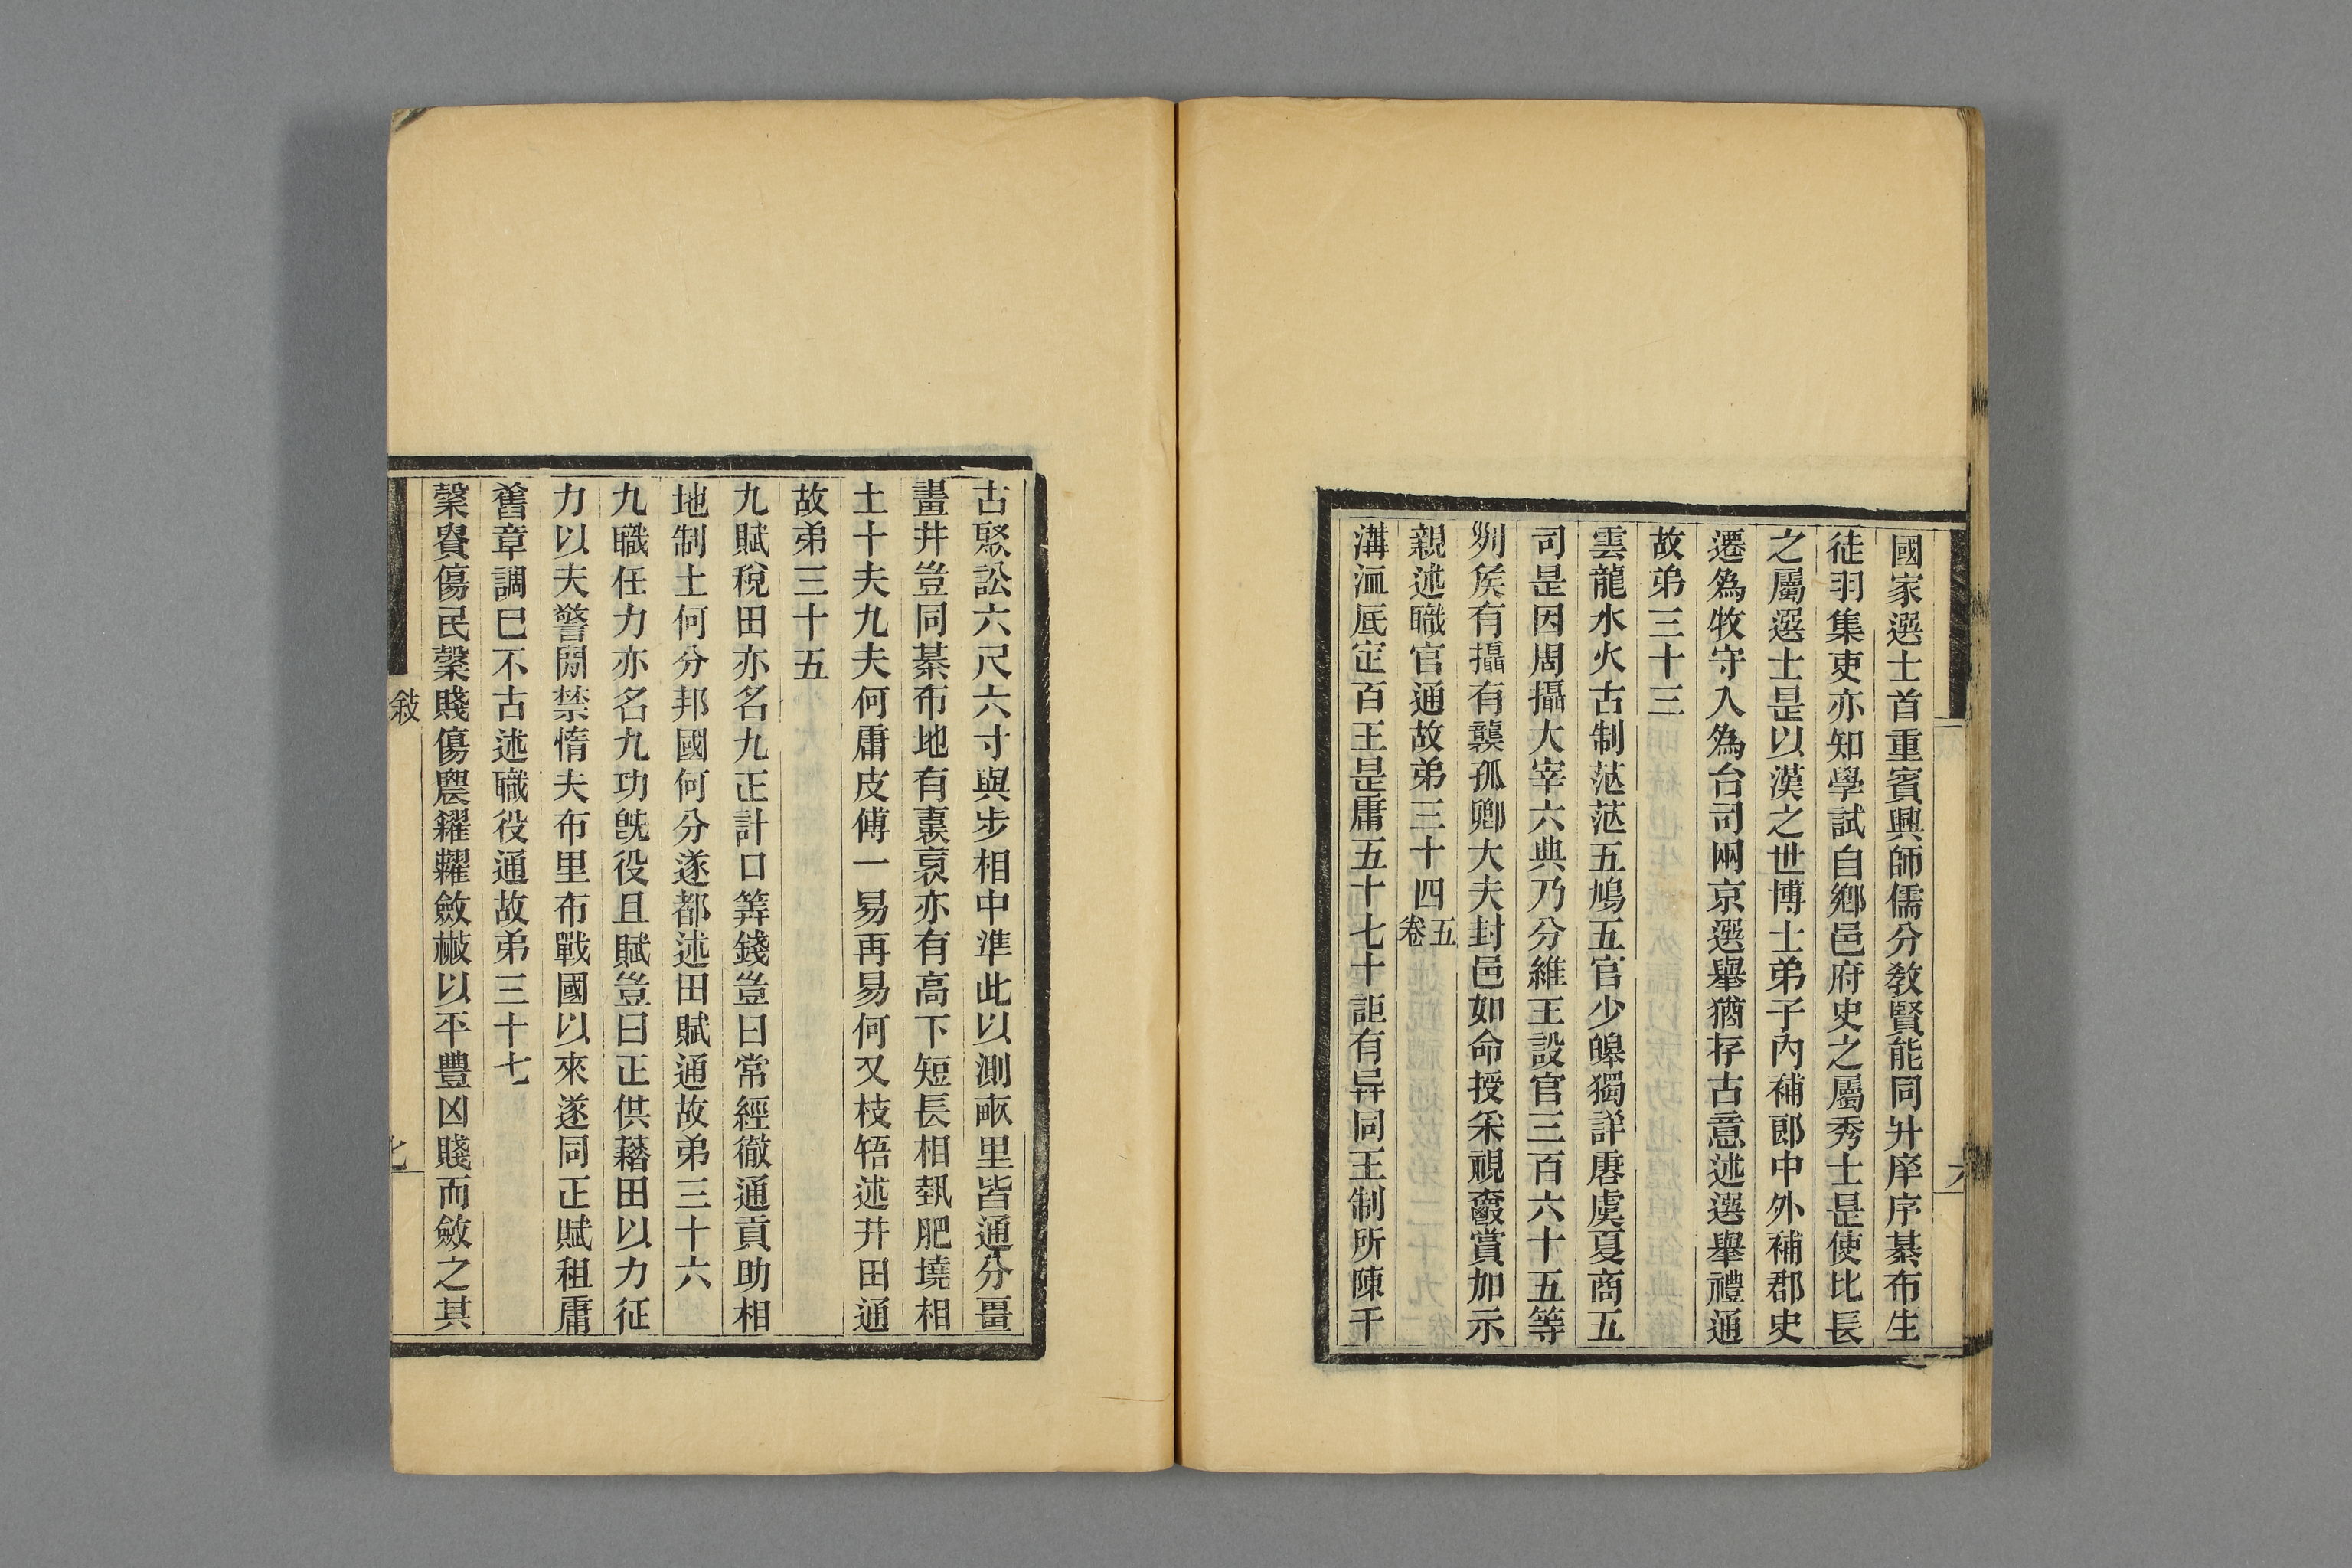 國家選士首重賓興師儒分敎賢能同升庠序綦布生
徒羽集吏亦知學試自鄉邑府史之屬秀士是使比長
之屬選士是以漢之世博士弟子內補郎中外補郡史
遷爲牧守入爲台司兩京選舉猶存古意述選舉禮通
故弟三十三
雲龍水火古制茫茫五鳩五官少皞獨詳唐虞夏商五
司是因周攝大宰六典乃分維王設官三百六十五等
列矦有攝有襲孤卿大夫封邑如命授采視鬷賞加示
親述職官通故弟三十四
五卷
溝洫厎定百王是庸五十七十詎有异同王制所陳千
六
古聚訟六尺六寸與步相中準此以測畝里皆通十分畺
畫井豈同綦布地有袤裒亦有高下短長相埶肥墝相
土十夫九夫何庸皮傅一易再易何又枝牾述井田通
故弟三十五
九賦稅田亦名九正計口筭錢豈曰常經徹通貢助相
地制土何分邦國何分遂都述田賦通故弟三十六
九職任力亦名九功旣役且賦豈曰正供藉田以力征
力以夫警閒禁惰夫布里布戰國以來遂同正賦租庸
舊章調巳不古述職役通故弟三十七
糴賮傷民糴賤傷農糶糴斂㯙以平豐凶賤而斂之其
敍
七